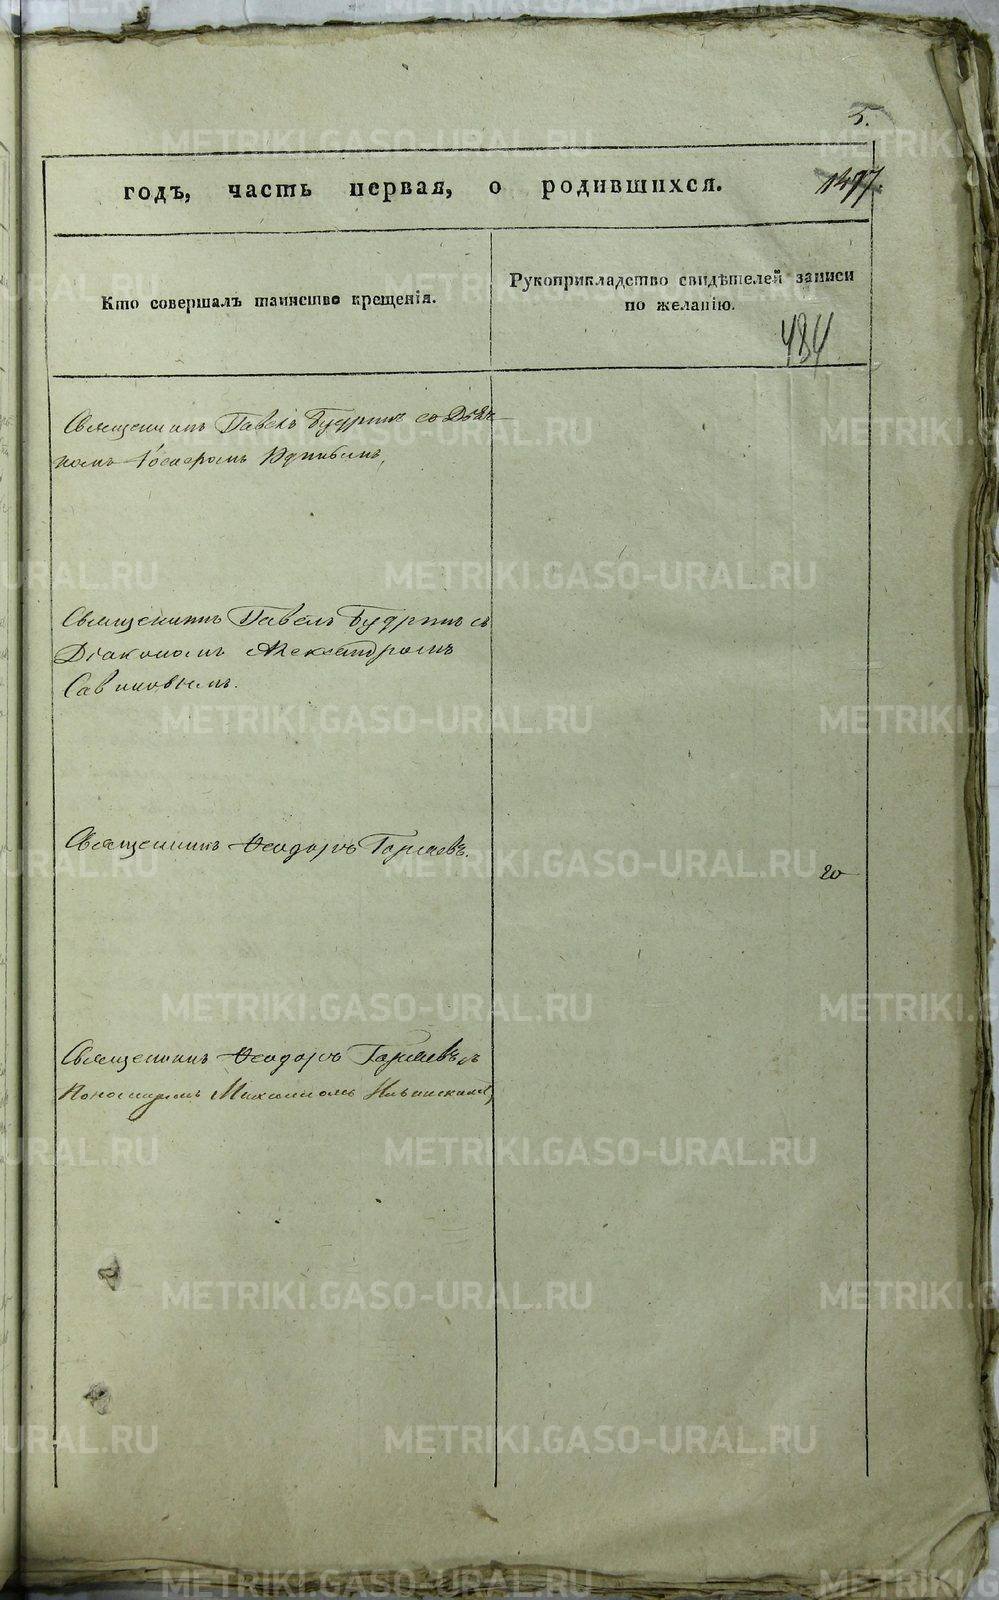 5.
годъ, часть первая, о родившихся.
1477.
Кто совершалъ таинство крещенія.
Рукоприкладство свидѣтелей записи
по желанію.
484
Священникъ Павелъ Будринъ со Дьяч-
комъ
Священникъ Павелъ Будринъ съ
Діакономъ Александромъ
Савиновымъ.
Священникъ Ѳеодоръ
20
Священникъ Ѳеодоръ
Пономаремъ Михаиломъ
METRIKI.GASO-URAL.RU